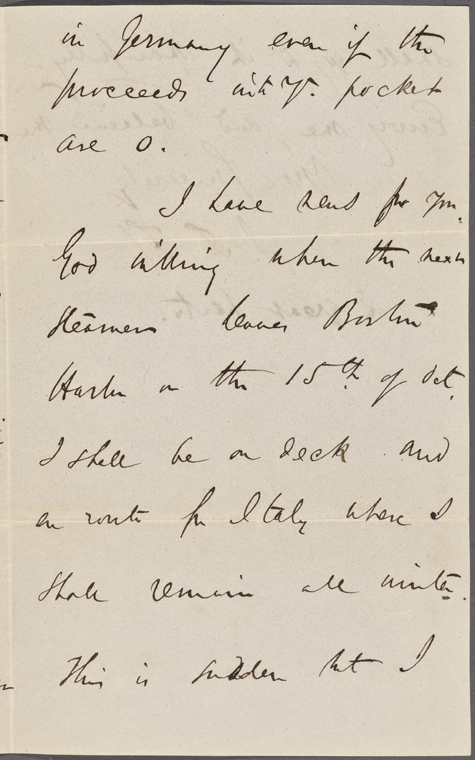 in Germany even if the
proceeds into yr. pocket
are 0.
I have news for you.
God willing when the next
steamer leaves Boston
Harbor on the 15th of Oct.
I shall be on deck and
en route for Italy where I
shall remain all winter.
This is sudden but I